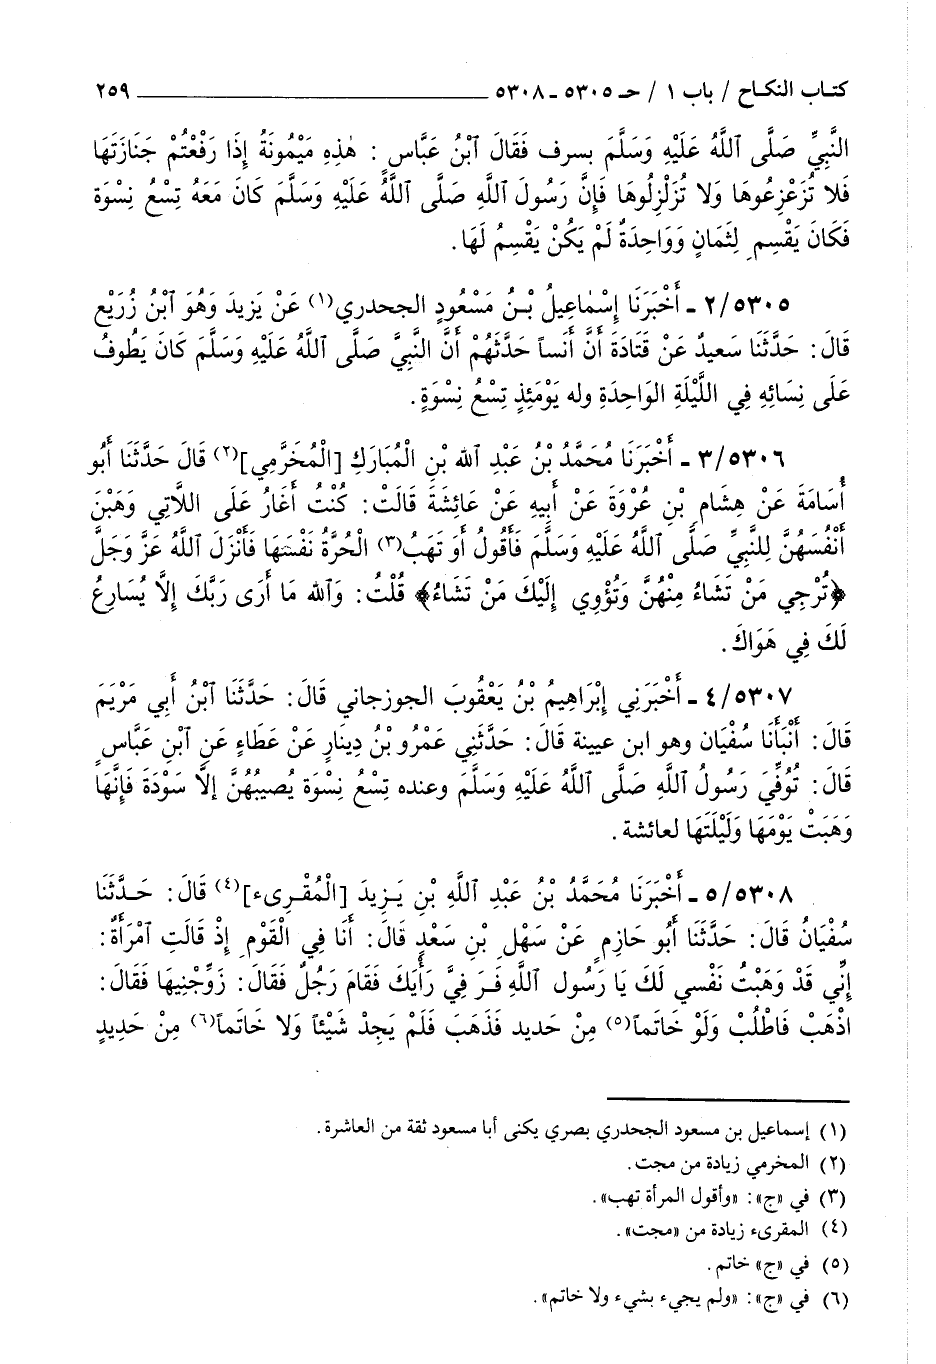 كتاب النكاح / باب ١ / حـ ٥٣٠٥ ـ ٥٣٠٨ ٢٥٩
النَّبِيِّ صَلَّى ٱللَّهُ عَلَيْهِ وَسَلَّمَ بسرف فَقَالَ ٱبْنُ عَبَّاسٍ : هٰذِهِ مَيْمُونَةُ إِذَا رَفَعْتُمْ جَنَازَتَهَا
فَلا تُزَعْزِعُوهَا وَلا تُزَلْزِلُوهَا فَإِنَّ رَسُولَ ٱللَّهِ صَلَّى ٱللَّهُ عَلَيْهِ وَسَلَّمَ كَانَ مَعَهُ تِسْعُ نِسْوَةٍ
فَكَانَ يَقْسِمِ لِثَمَانٍ وَوَاحِدَةٌ لَمْ يَكُنْ يَقْسِمُ لَهَا.
٢/٥٣٠٥ ـ أَخْبَرَنَا إِسْمٰاعِيلُ بْنُ مَسْعُودٍ الجحدري(١) عَنْ يَزِيدَ وَهُوَ ٱبْنُ زُرَيْعٍ
قَالَ: حَدَّثَنَا سَعيدٌ عَنْ قَتَادَةَ أَنَّ أَنَساً حَدَّثَهُمْ أَنَّ النَّبِيَّ صَلَّى ٱللَّهُ عَلَيْهِ وَسَلَّمَ كَانَ يَطُوفُ
عَلَى نِسَائِهِ فِي اللَّيْلَةِ الوَاحِدَةِ وله يَوْمَئِذٍ تِسْعُ نِسْوَةٍ.
٣/٥٣٠٦ ـ أَخْبَرَنَا مُحَمَّدُ بْنُ عَبْدِ ٱلله بْنِ الْمُبَارَكِ [الْمُخَرَّمِي](٢) قَالَ حَدَّثَنَا أَبُو
أُسَامَةَ عَنْ هِشَامِ بْنِ عُرْوَةَ عَنْ أَبِيهِ عَنْ عَائِشَةَ قَالَتْ: كُنْتُ أَغَارُ عَلَى اللَّاتِي وَهَبْنَ
أَنْفُسَهُنَّ لِلنَّبِيِّ صَلَّى ٱللَّهُ عَلَيْهِ وَسَلَّمَ فَأَقُولُ أَوَ تَهَبُ(٣) الْحُرَّةُ نَفْسَهَا فَأَنْزَلَ اللَّهُ عَزَّ وَجَلَّ
﴿تُرْجِي مَنْ تَشَاءُ مِنْهُنَّ وَتُؤْوِي إِلَيْكَ مَنْ تَشَاءُ﴾ قُلْتُ: وَالله مَا أَرَى رَبَّكَ إِلَّا يُسَارِعُ
لَكَ فِي هَوَاكَ.
٤/٥٣٠٧ ـ أَخْبَرَنِي إِبْرَاهِيمُ بْنُ يَعْقُوبَ الجوزجاني قَالَ: حَدَّثَنَا ٱبْنُ أَبِي مَرْيَمَ
قَالَ: أَنْبَأَنَا سُفْيَان وهو ابن عيينة قَالَ: حَدَّثَنِي عَمْرُو بْنُ دِينَارٍ عَنْ عَطَاءٍ عَنِ ٱبْنِ عَبَّاسٍ
قَالَ: تُوُفِّيَ رَسُولُ ٱللَّهِ صَلَّى ٱللَّهُ عَلَيْهِ وَسَلَّمَ وعنده تِسْعُ نِسْوَة يُصيبُهُنَّ إلَّا سَوْدَةَ فَإِنَّهَا
وَهَبَتْ يَوْمَهَا وَلَيْلَتَهَا لعائشة.
٥/٥٣٠٨ ـ أَخْبَرَنَا مُحَمَّدُ بْنُ عَبْدِ ٱللَّهِ بْنِ يَزِيدَ [الْمُقْرِىء](٤) قَالَ: حَدَّثَنَا
سُفْيَانُ قَالَ: حَدَّثَنَا أَبُو حَازِمٍ عَنْ سَهْلِ بْنِ سَعْدٍ قَالَ: أَنَا فِي الْقَوْمِ إِذْ قَالَتِ ٱمْرَأَةٌ:
إِنِّي قَدْ وَهَبْتُ نَفْسي لَكَ يَا رَسُول ٱللَّهِ فَرَ فِيَّ رَأْيَكَ فَقَامَ رَجُلٌ فَقَالَ: زَوِّجْنِيهَا فَقَالَ:
اذْهَبْ فَاطْلُبْ وَلَوْ خَاتَماً(٥) مِنْ حَديد فَذَهَبَ فَلَمْ يَجِدْ شَيْئاً وَلا خَاتَماً(٦) مِنْ حَدِيدٍ
(١) إسماعيل بن مسعود الجحدري بصري يكنى أبا مسعود ثقة من العاشرة.
(٢) المخرمي زيادة من مجت.
(٣) في «ج»: «وأقول المرأة تهب».
(٤) المقرىء زيادة من «مجت».
(٥) في «ج» خاتم.
(٦) في «ج»: «ولم يجيء بشيء ولا خاتم».